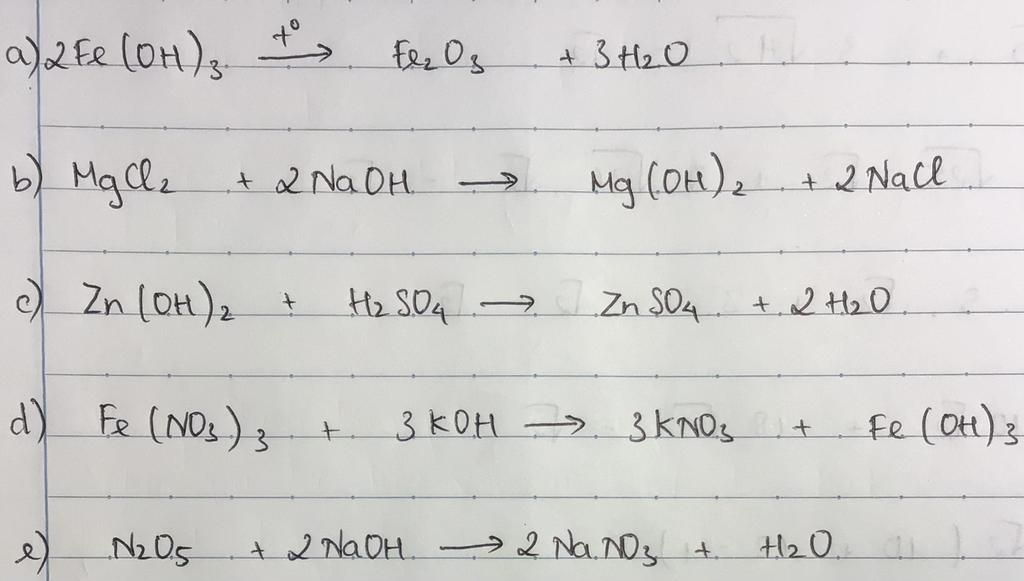 a) 2Fe(OH)₃ →(t°) Fe₂O₃ + 3H₂O
b) MgCl₂ + 2NaOH → Mg(OH)₂ + 2NaCl
c) Zn(OH)₂ + H₂SO₄ → ZnSO₄ + 2H₂O
d) Fe(NO₃)₃ + 3KOH → 3KNO₃ + Fe(OH)₃
e) N₂O₅ + 2NaOH → 2NaNO₃ + H₂O